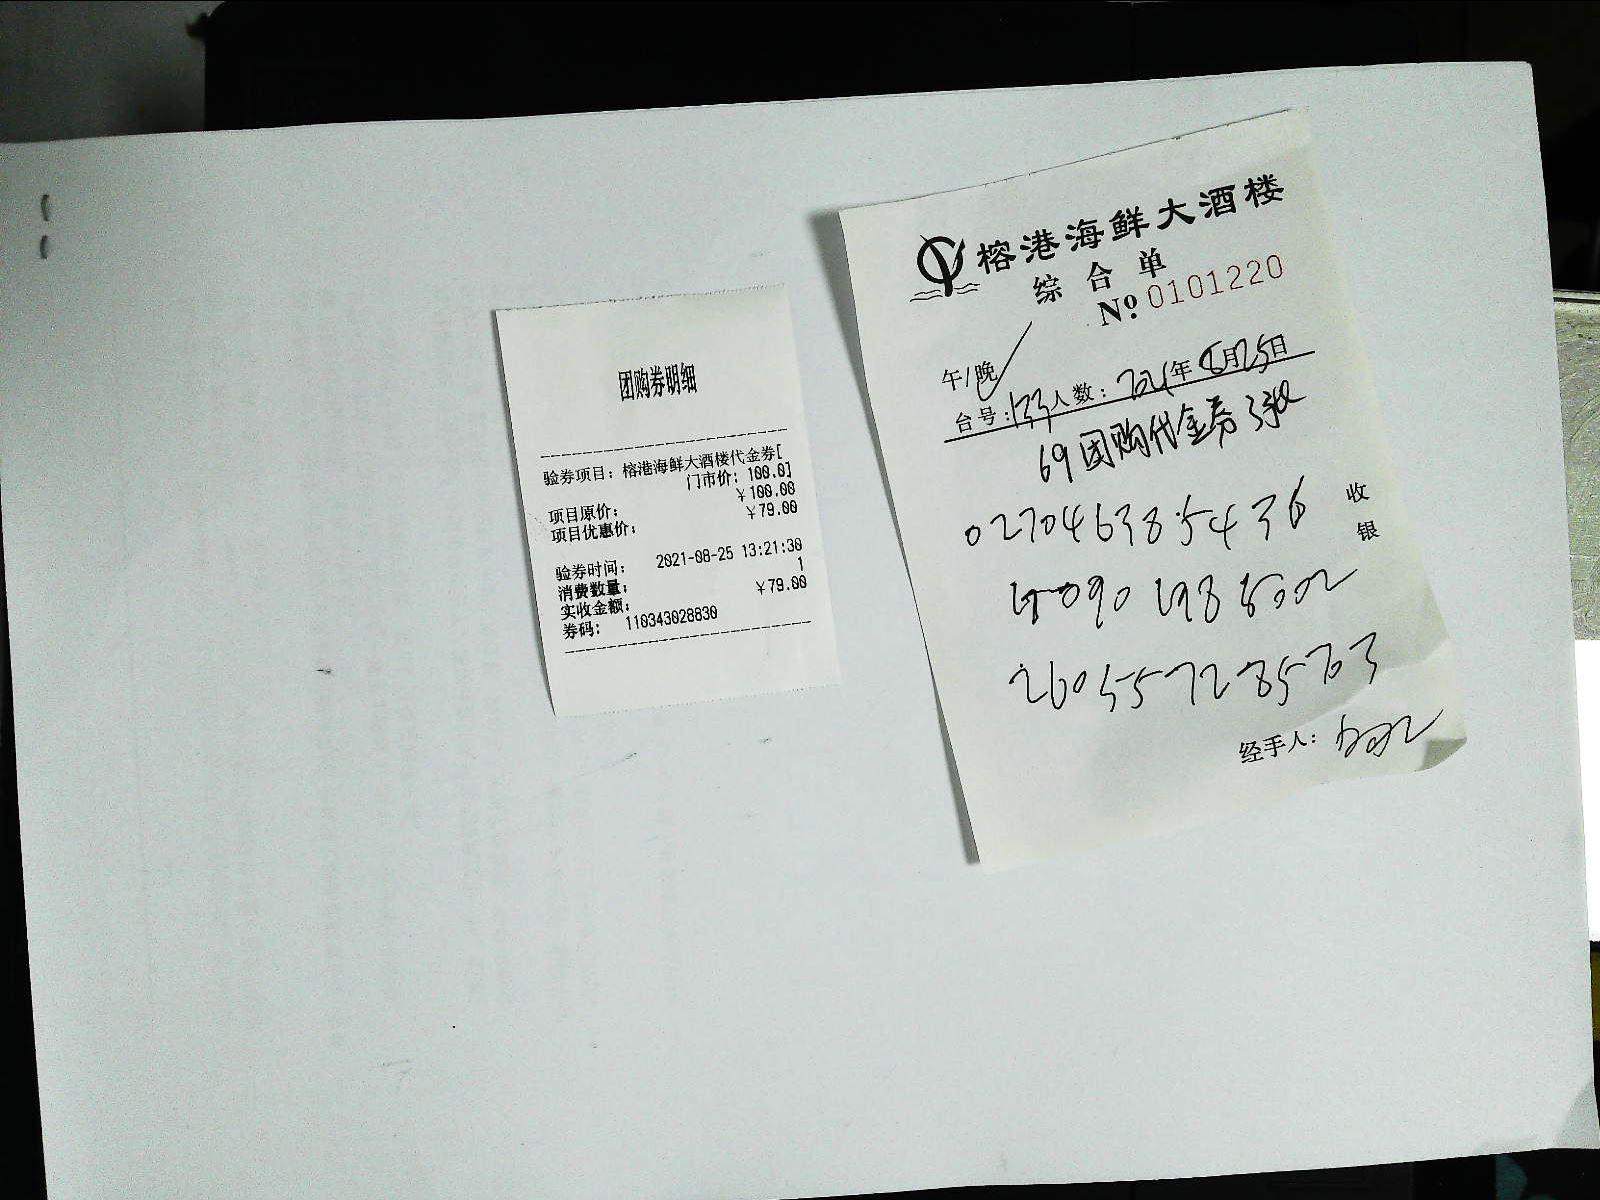 团购券明细
验券项目：榕港海鲜大酒楼代金券[
门市价：100.0]
项目原价： ￥100.00
项目优惠价： ￥79.00
验券时间： 2021-08-25 13:21:30
消费数量： 1
实收金额： ￥79.00
券码： 110343028830
榕港海鲜大酒楼
综合单
№ 0101220
午/晚
台号： 人数： 2021年8月25日
69团购代金券3张
027046385436
260557728573
收银
经手人：